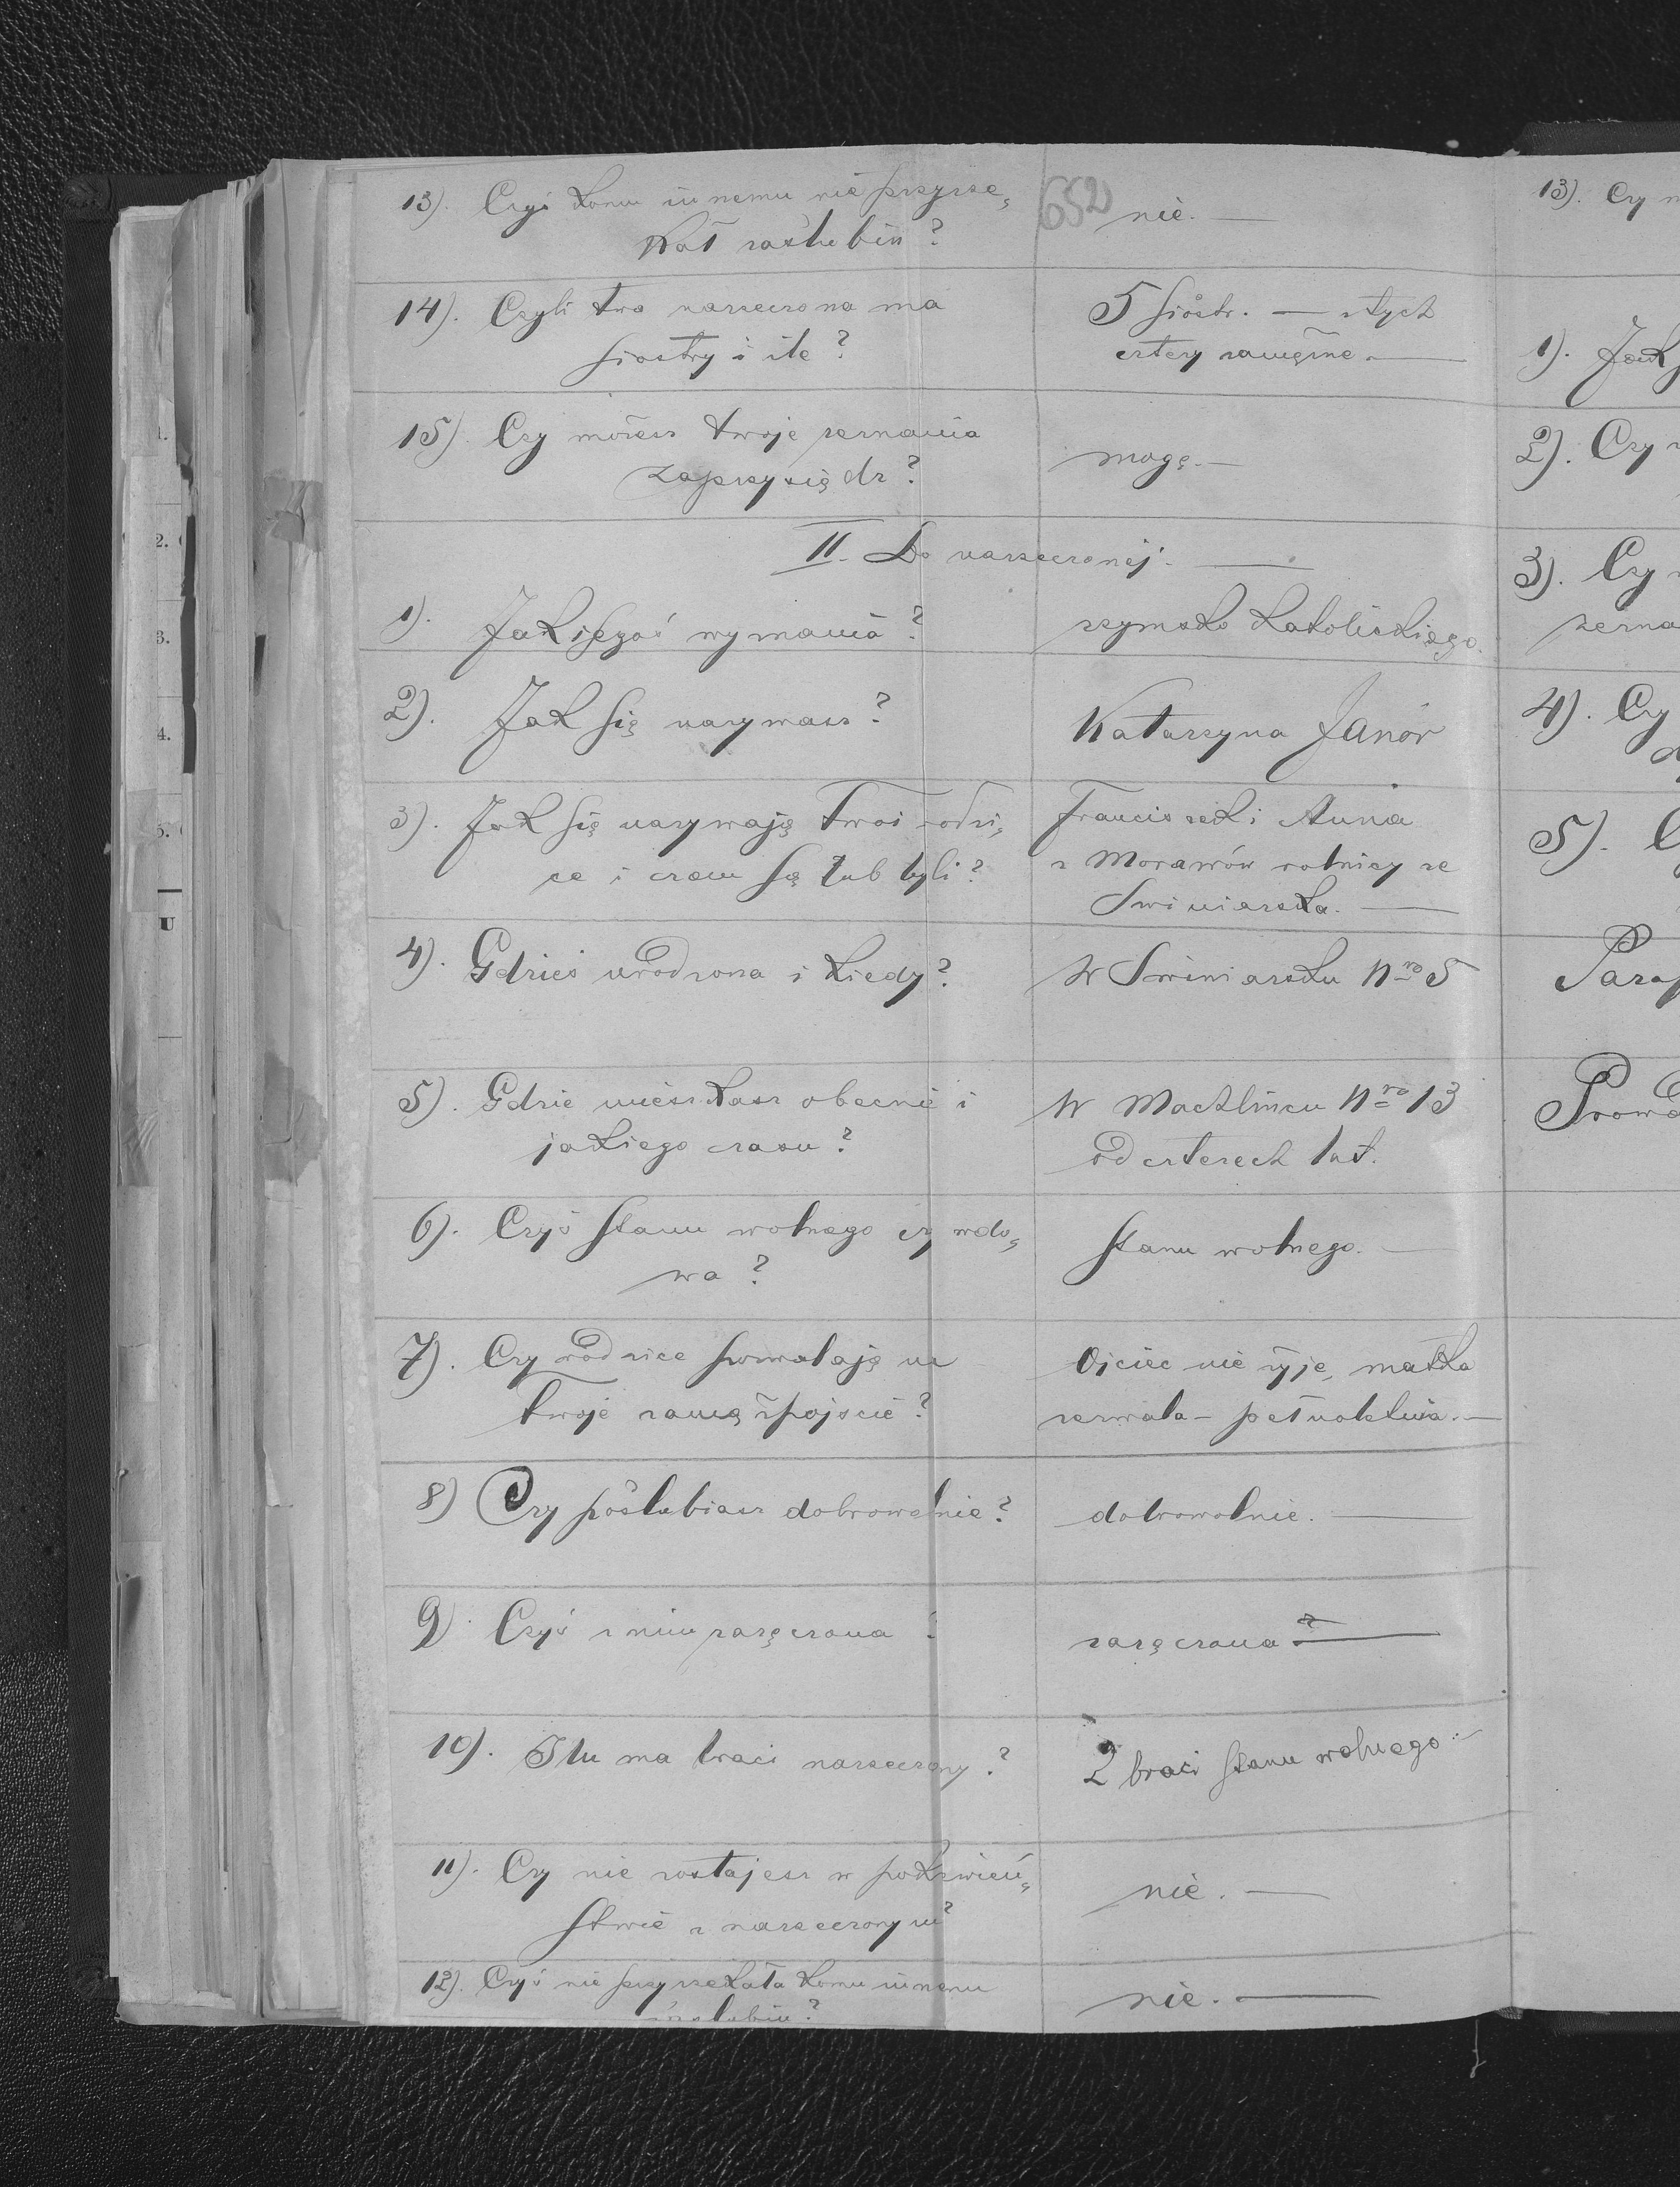 652
13). Czyś komu innemu nie przyrze„
kał zaślubin?
nie. —
14). Czyli twa narzeczona ma
siostry i ile?
5 sióstr. — z tych
cztery zamężne. —
15). Czy możesz twoje zeznania
zaprzysiędz?
mogę. —
II. Do narzeczonej. —
1). Jakiegoś wyznania?
rzymsko katolickiego.
2). Jak się nazywasz?
Katarzyna Janór
3). Jak się nazywają Twoi rodzi„
ce i czem są lub byli?
Franciszek i Anna
z Morawów rolnicy ze
Swiniarska. —
4). Gdzieś urodzona i kiedy?
W Swiniarsku Nro 5
5). Gdzie mieszkasz obecnie i
jakiego czasu?
W Mochlincu Nro 13
od czterech lat.
6). Czyś stanu wolnego czy wdo„
wa?
stanu wolnego. —
7). Czy rodzice pozwalają na
twoje zamęźpójscie?
Ojciec nie żyje, matka
zezwala – pełnoletnia. —
8) Czy poślubiasz dobrowolnie?
dobrowolnie. —
9) Czyś z nim zaręczona?
zaręczona. —
10). Ilu ma braci narzeczony?
2 braci stanu wolnego. —
11). Czy nie zostajesz w pokrewień„
stwie z narzeczonym?
nie. —
12). Czyś nie przyrzekała komu innemu
zaślubin?
nie. —
13). Czy
1). Jak
2). Czy
3). Czy
zezna
4). Czy
5).